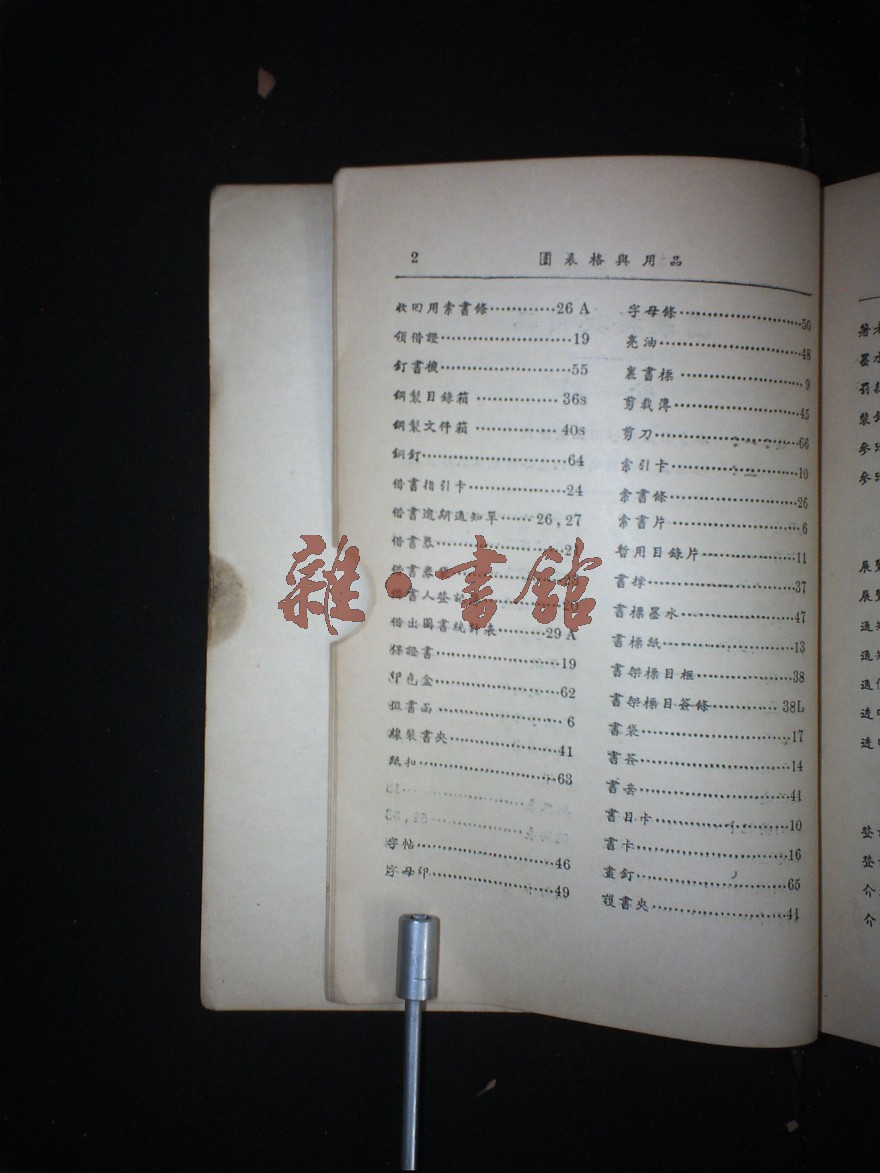 2 圖表格與用品
收回用索書條············26 A
領借證························19
釘書機························55
鋼製目錄箱 ··············· 36s
鋼製文件箱 ··············· 40s
銅釘···························64
借書指引卡··················24
借書逾期通知單······ 26,27
借書券
借書人登記
借出圖書統計表·········29 A
保證書························19
印色盒························62
６
線裝書夾·····················41
紙扣···························63
字帖···························46
字母印························49
字母條························50
亮油···························48
裏書標························9
剪裁薄························45
剪刀···························66
索引卡························10
索書條························26
索書片························6
暫用目錄片··················11
書撐···························37
書標墨水·····················47
書標紙························13
書架標目框··················38
書架標目簽條············ 38L
書袋···························17
書簽···························14
書套···························41
書目卡························10
書卡···························16
畫釘···························65
護書夾························41
雜·書館
展
展
通
通
通
透
透
登
登
介
介